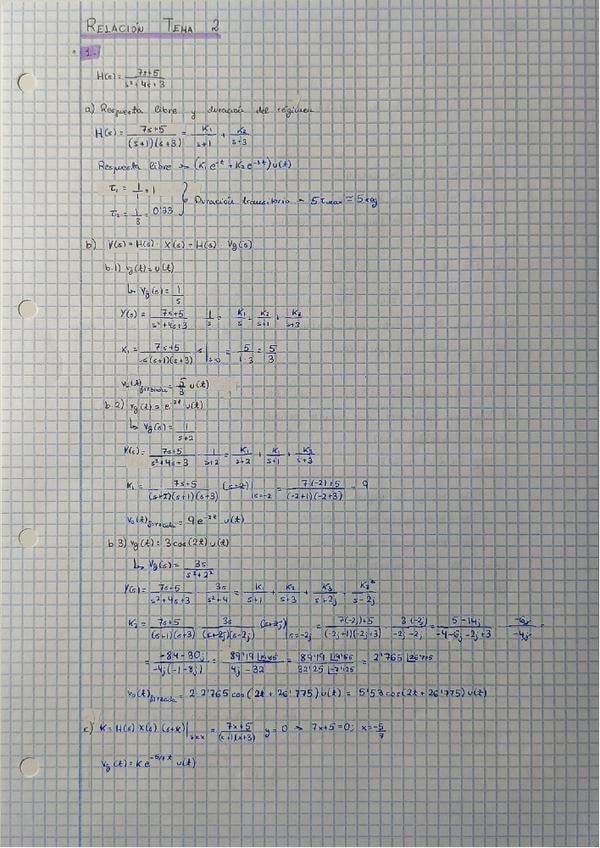 RELACIÓN TEMA 2
1.
H(s) = 7s+5 / s²+4s+3
a) Respuesta libre y duración del régimen
H(s) = 7s+5 / (s+1)(s+3) = K₁ / s+1 + K₂ / s+3
Respuesta libre → (K₁ e^-t + K₂ e^-3t) u(t)
τ₁ = 1/1 = 1
τ₂ = 1/3 = 0'33 } Duración transitorio = 5 τmax ≈ 5 seg
b) Y(s) = H(s) · X(s) = H(s) · Vg(s)
b.1) vg(t) = u(t)
↳ Vg(s) = 1/s
Y(s) = 7s+5 / s²+4s+3 · 1/s = K₁/s + K₂ / s+1 + K₃ / s+3
K₁ = 7s+5 / s(s+1)(s+3) · s |s=0 = 5 / 1·3 = 5/3
v₀(t)forzada = 5/3 u(t)
b.2) vg(t) = e^-2t u(t)
↳ Vg(s) = 1 / s+2
Y(s) = 7s+5 / s²+4s+3 · 1 / s+2 = K₁ / s+2 + K₁ / s+1 + K₃ / s+3
K₁ = 7s+5 / (s+2)(s+1)(s+3) (s+2) |s=-2 = 7(-2)+5 / (-2+1)(-2+3) = 9
v₀(t)forzada = 9 e^-2t u(t)
b.3) vg(t) = 3 cos(2t) u(t)
↳ Vg(s) = 3s / s²+2²
Y(s) = 7s+5 / s²+4s+3 · 3s / s²+4 = K₁ / s+1 + K₂ / s+3 + K₃ / s+2j + K₃* / s-2j
K₃ = 7s+5 / (s+1)(s+3) · 3s / (s+2j)(s-2j) (s+2j) |s=-2j = 7(-2j)+5 / (-2j+1)(-2j+3) · 3(-2j) / -2j-2j = 5-14j / -4-6j-2j+3 · -6j / -4j =
= -84-30j / -4j(-1-8j) = 89'19 / 4j-32 = 89'19 / 32'25 = 2'765
v₀(t)forzada = 2·2'765 cos(2t + 26'775) u(t) = 5'53 cos(2t + 26'775) u(t)
c) K = H(s) X(s) (s+x) = 7x+5 / (x+1)(x+3) y = 0 → 7x+5 = 0; x = -5/7
vg(t) = K e^-5/7 t u(t)